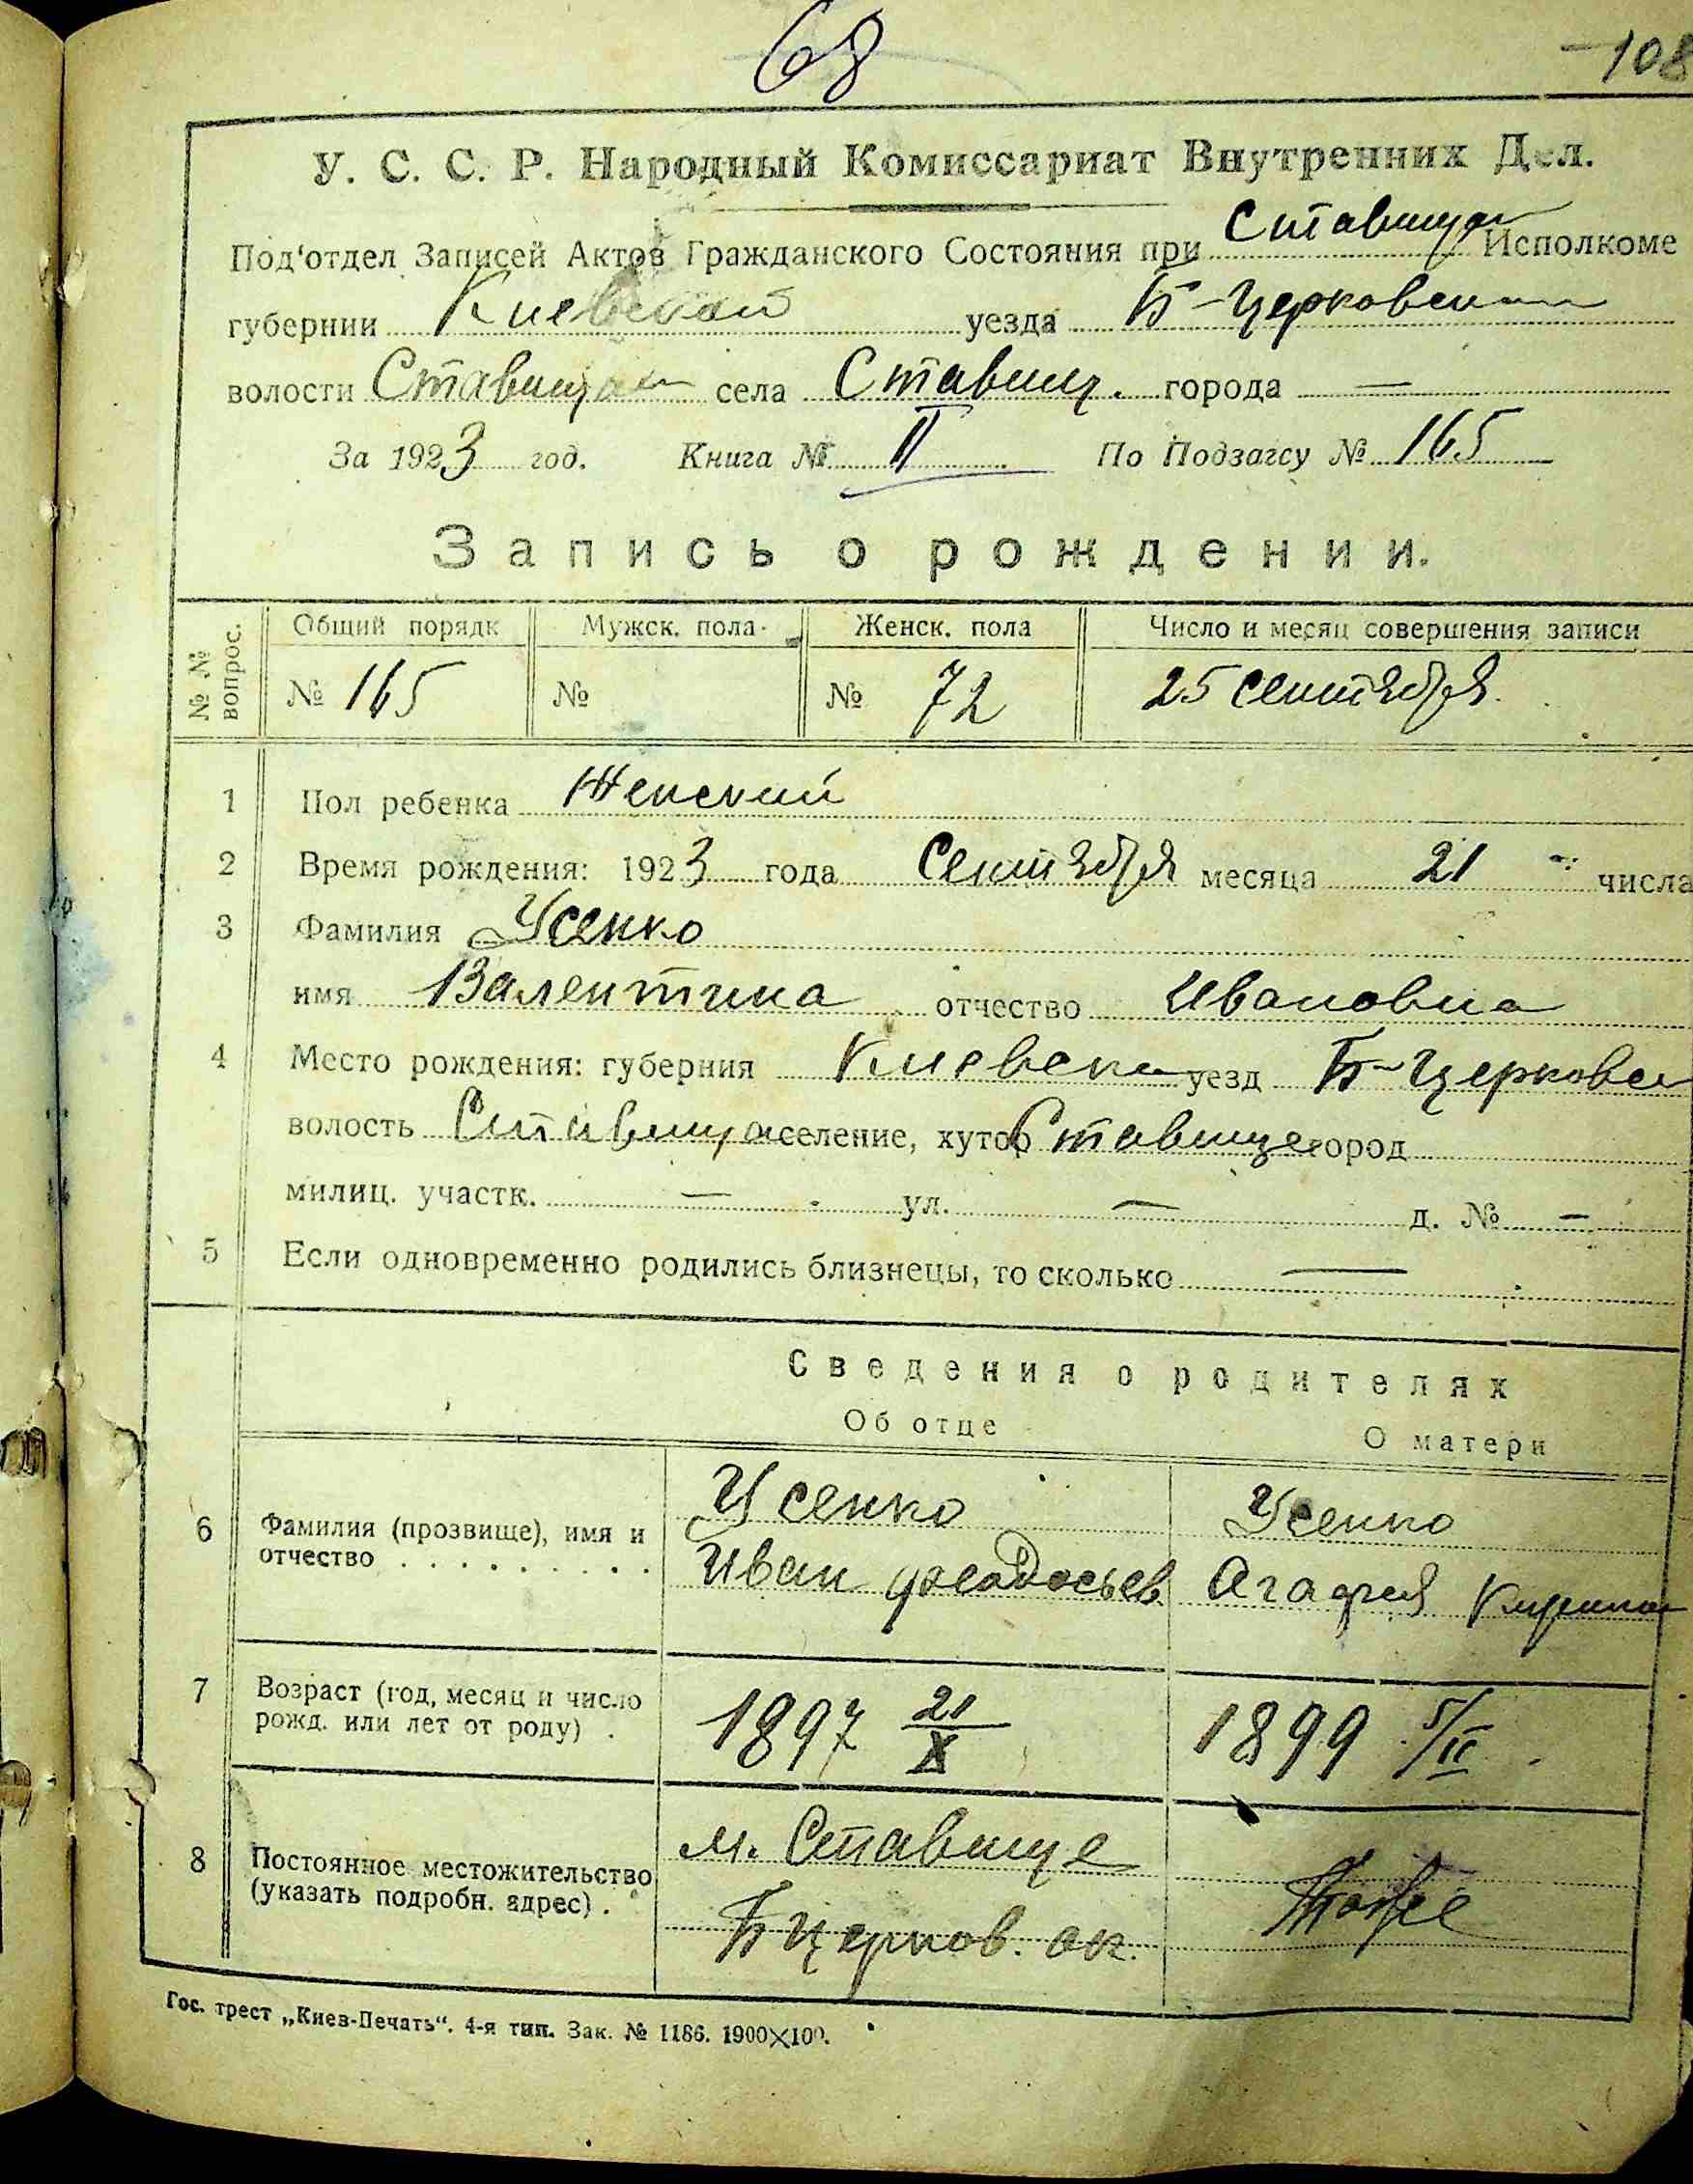 68
108
У. С. С. Р. Народный Комиссариат Внутренних Дел.
Под‘отдел Записей Актов Гражданского Состояния при Ставищан Исполкоме
губернии Киевской уезда Б-Церковск
волости Ставищан села Ставищ. города —
За 1923 год. Книга № II По Подзагсу № 165
Запись о рождении.
№ № вопрос. Общий порядк Мужск. пола Женск. пола Число и месяц совершения записи
№ 165 № № 72 25 сентября.
1 Пол ребенка Женский
2 Время рождения: 1923 года Сентября месяца 21 числа
3 Фамилия Усенко
имя Валентина отчество Ивановна
4 Место рождения: губерния Киевска уезд Б-Церковск
волость Ставищан селение, хутор Ставище город
милиц. участк. — ул. — д. № —
5 Если одновременно родились близнецы, то сколько —
Сведения о родителях
Об отце О матери
6 Фамилия (прозвище), имя и отчество . . . . . . . . . Усенко Усенко
Иван Феодосьев Агафия
7 Возраст (год, месяц и число рожд. или лет от роду) . 1897 21/X 1899 5/II
8 Постоянное местожительство (указать подробн. адрес) . м. Ставище Тоже
Б Церков. ок.
Гос. трест „Киев-Печать“. 4-я тип. Зак. № 1186. 1900×100.